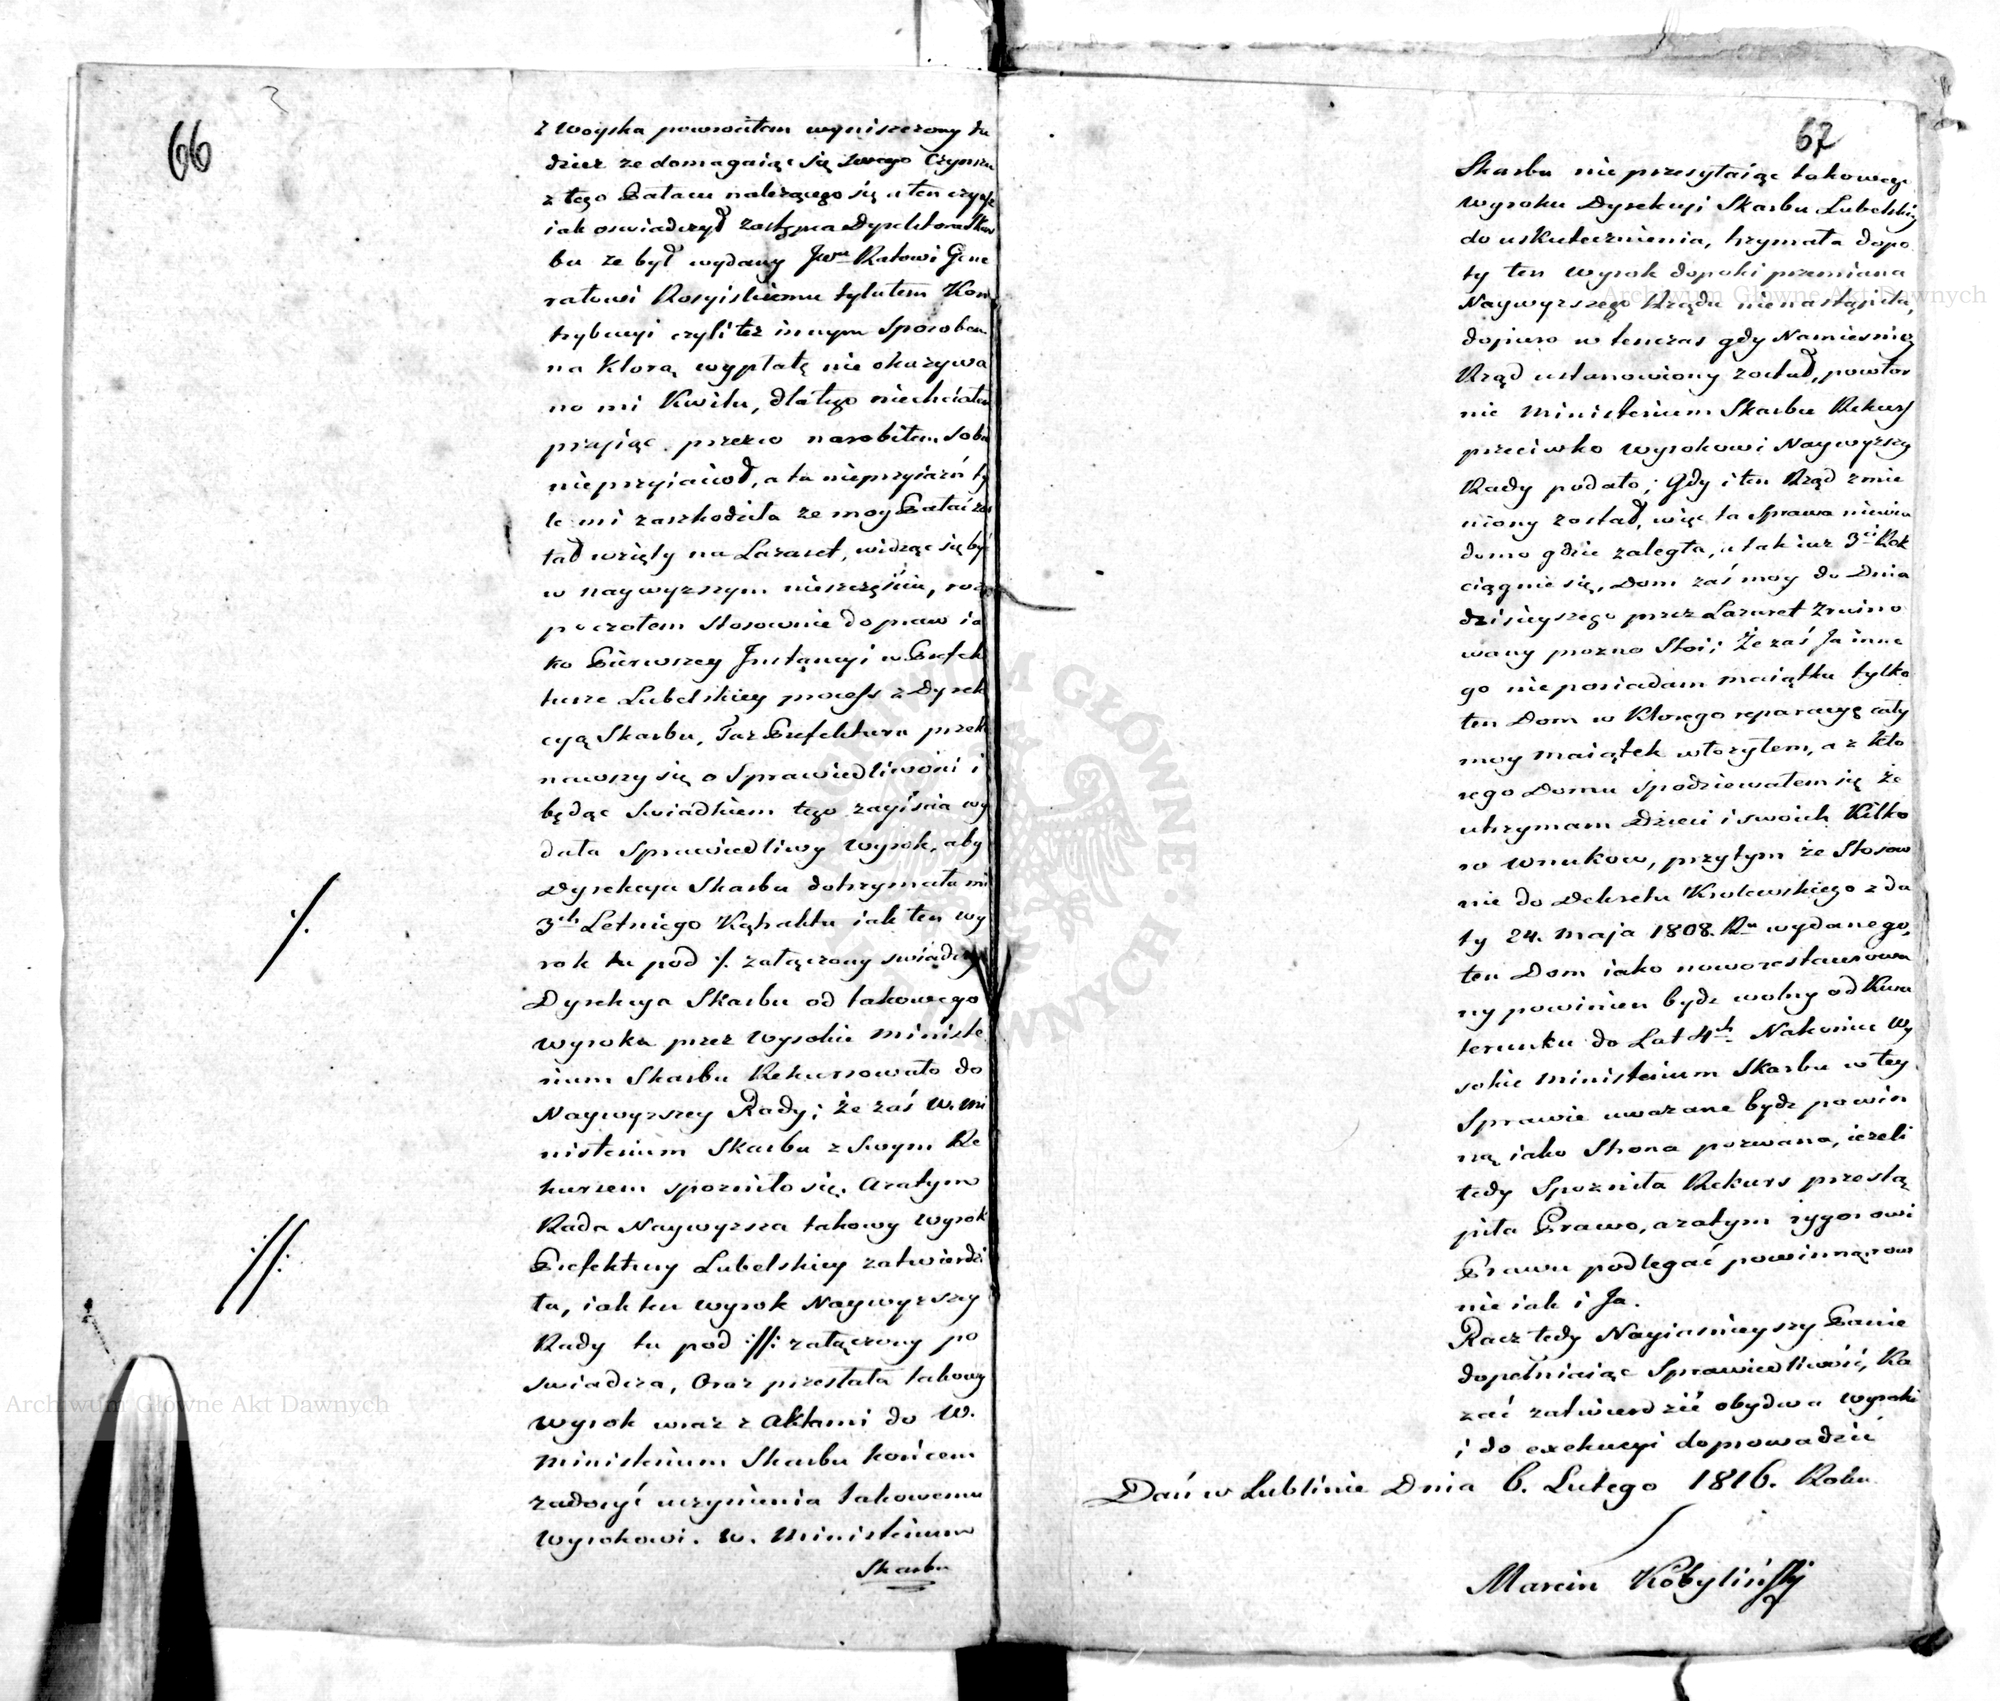 66
z woyska powrociłem wyniszczony tu
dzież ze domagaiąc się swego Czynszu
z tego Pałacu należącego się a ten czynsz
iak oswiadczył zastępca Dyrektora Skar
bu ze był wydany Jwu Ratowi Gene
rałowi Rosyiskiemu tytułem Kon
trybucyi czyli też innym sposobem
na Którą wypłatę nie okazywa
no mi Kwitu, dla tego niechciałem
przyiąc przezco narobiłem sobie
nieprzyiacioł, a ta nieprzyiazń ty
le mi zaszkodziła ze moy Pałac zos
tał wzięty na Lazaret, widząc się być
w naywyzszym nieszczęściu, roz
poczołem stosownie do praw ia
ko Pierwszey Instancyi w Prefek
turze Lubelskiey process z Dyrek
cyą Skarbu, Taż Prefektura przeko
nawszy się o Sprawiedliwości i
będąc Swiadkiem tego zayścia wy
dała Sprawiedliwy Wyrok, aby
Dyrekcya Skarbu dotrzymała mi
3ch Letniego Kątraktu iak ten wy
rok tu pod ·/. załączony swiadczy
·/.
Dyrekcya Skarbu od takowego
wyroku przez Wysokie Ministe
rium Skarbu Rekursowało do
Naywyzszey Rady; że zaś W. Mi
nisterium Skarbu z Swym Re
kursem spozniło się. Azatym
Rada Naywyzsza takowy Wyrok
Prefektury Lubelskiey zatwierdzi
:/​/:
ła, iak tu wyrok Naywyzszey
Rady tu pod :/​/: załączony po
swiadcza, Oraz przesłała takowy
Wyrok wraz z Aktami do W.
Ministerium Skarbu końcem
zadosyć uczynienia takowemu
Wyrokowi. W. Ministerium
Skarbu
67
Skarbu nie przesyłaiąc takowego
Wyroku Dyrekcyi Skarbu Lubelskiey
do uskutecznienia, trzymała dopo
ty ten Wyrok dopoki przemiana
Naywyzszego Rządu nie nastąpiła,
dopiero w tenczas gdy Namiesniczy
Rząd ustanowiony został, powtor
nie Ministerium Skarbu Rekurs
przeciwko wyrokowi Naywyzszey
Rady podało; Gdy i ten Rząd zmie
niony został, więc ta Sprawa niewia
domo gdzie zaległa, a tak iuz 3ci Rok
ciągnie się, Dom zaś moy do Dnia
dzisieyszego przez Lazaret zruino
wany prozno stoi; Że zaś Ja inne
go nie posiadam maiątku tylko
ten Dom w Ktorego reparacyę cały
moy maiątek włożyłem, a z Kto
rego Domu spodziewałem się że
utrzymam Dzieci i swoich Kilko
ro wnukow, przytym że Stosow
nie do Dekretu Krolewskiego z da
ty 24. Maja 1808. Ru wydanego,
ten Dom iako noworestaurowa
ny powinien bydz wolny od Kwa
terunku do Lat 4ch Nakoniec Wy
sokie Ministerium Skarbu w tey
Sprawie uwazane bydz powin
ną iako Strona pozwana, iezeli
tedy Spozniła Rekurs przestą
piła Prawo, azatym rygorowi
Prawu podlegać powinna, row
nie iak i Ja.
Racz tedy Nayiasnieyszy Panie
dopełniaiąc Sprawiedliwość, Ka
zać zatwierdzić obydwa wyroki
i do exekucyi doprowadzić
Dań w Lublinie Dnia 6. Lutego 1816. Roku
Marcin Kobyliński
Archiwum Główne Akt Dawnych
Archiwum Główne Akt Dawnych
ARCHIWUM GŁÓWNE AKT DAWNYCH